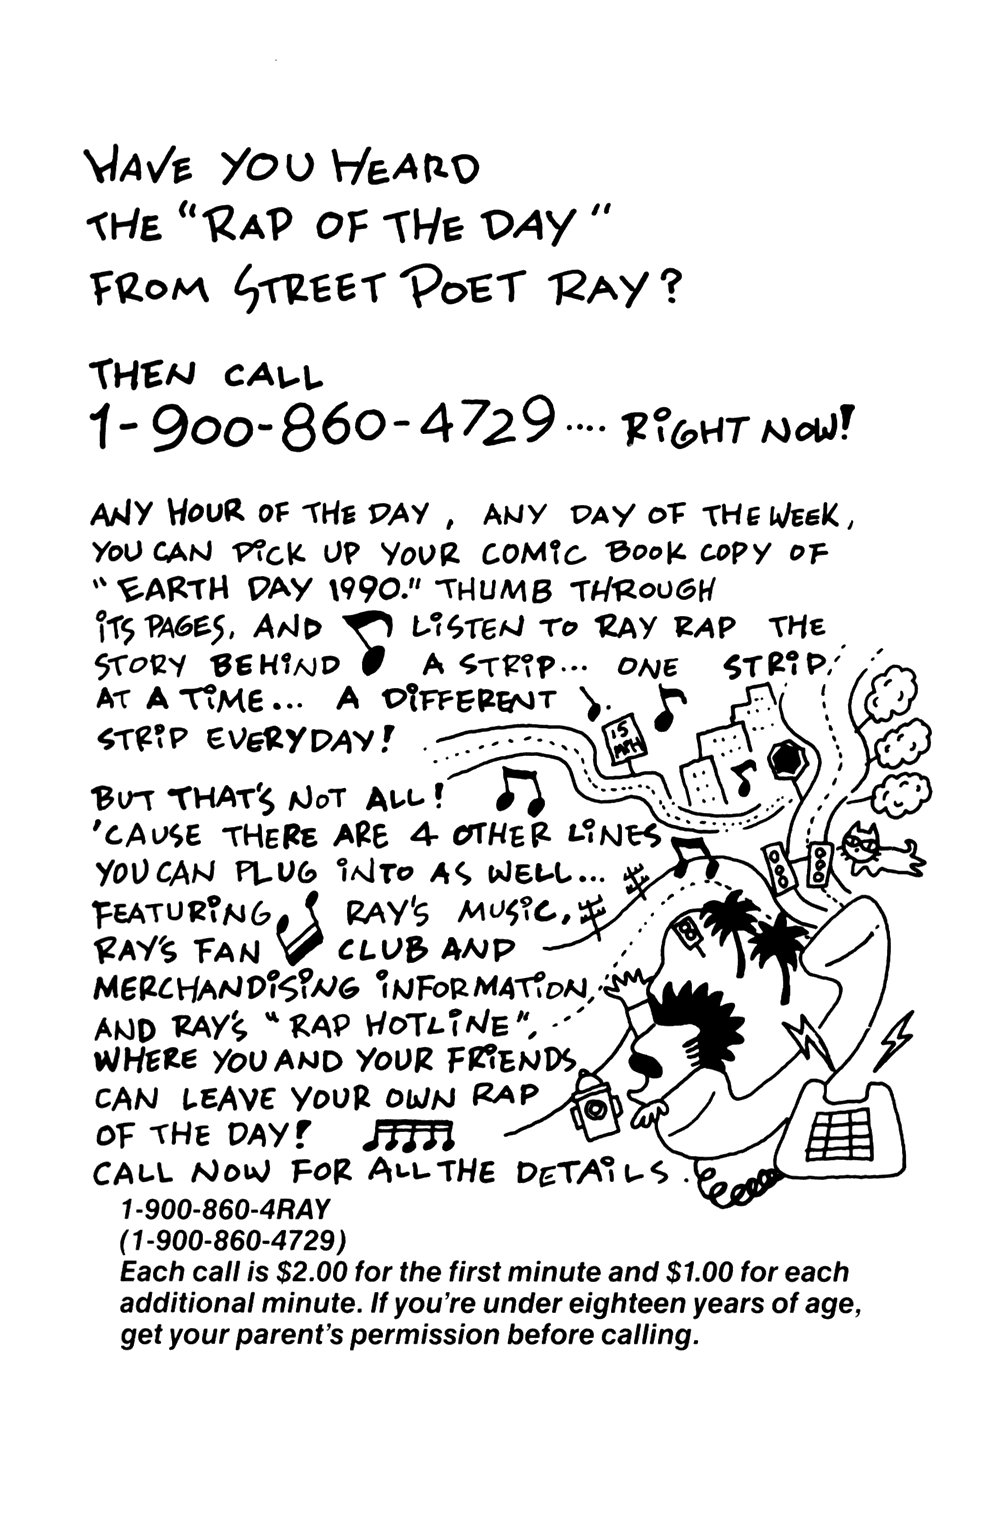 HAVE YOU HEARD
THE "RAP OF THE DAY"
FROM STREET POET RAY?
THEN CALL
1-900-860-4729.... RiGHT NOW!
ANY HOUR OF THE DAY, ANY DAY OF THE WEEK,
YOU CAN PiCK UP YOUR COMiC BOOK COPY OF
"EARTH DAY 1990." THUMB THROUGH
iTS PAGES, AND LiSTEN TO RAY RAP THE
STORY BEHiND A STRiP... ONE STRiP
AT A TiME... A DiFFERENT
STRiP EVERYDAY!
15
MPH
BUT THAT'S NOT ALL!
'CAUSE THERE ARE 4 OTHER LiNES
YOU CAN PLUG iNTO AS WELL...
FEATURiNG RAY'S MUSiC,
RAY'S FAN CLUB AND
MERCHANDiSiNG iNFORMATiON,
AND RAY'S "RAP HOTLiNE",
WHERE YOU AND YOUR FRiENDS
CAN LEAVE YOUR OWN RAP
OF THE DAY!
CALL NOW FOR ALL THE DETAiLS.
1-900-860-4RAY
(1-900-860-4729)
Each call is $2.00 for the first minute and $1.00 for each
additional minute. If you're under eighteen years of age,
get your parent's permission before calling.